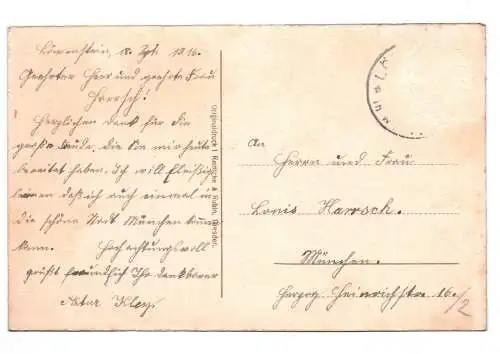 Löwenstein, 18. Spt. 1916.
Geehrter Herr und geehrte Frau
Harrsch!
Herzlichen Dank für die
große Freude, die Sie mir heute
bereitet haben. Ich will fleissig
lernen daß ich auch einmal in
die schöne Stadt München kommen
kann. Hochachtungsvoll
grüßt freundlich Ihr dankbarer
Artur Kley.
Originaldruck Rentsche & Rubin, Dresden.
An
Herrn und Frau
Louis Harrsch.
München.
Herzog Heinrichstr. 16./2